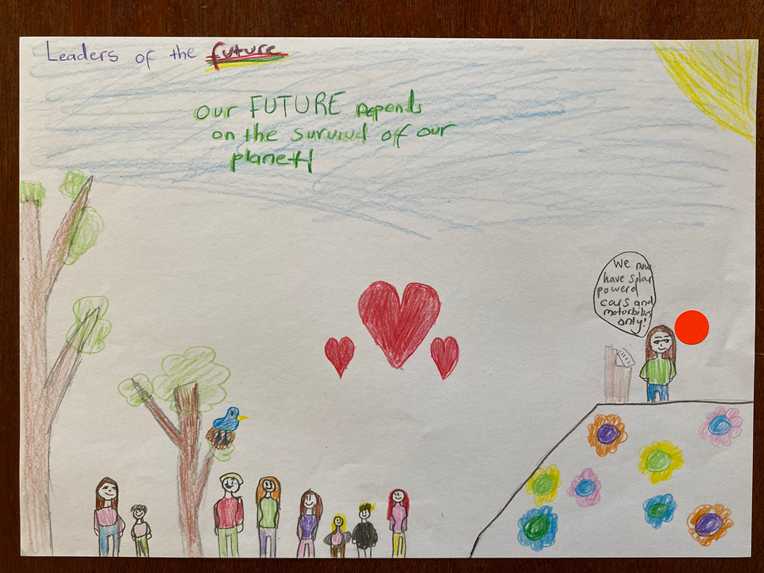 Leaders of the future
Our FUTURE Depends
on the survival of our
planet!
We now
have solar
powerd
cars and
motorbikes
only!